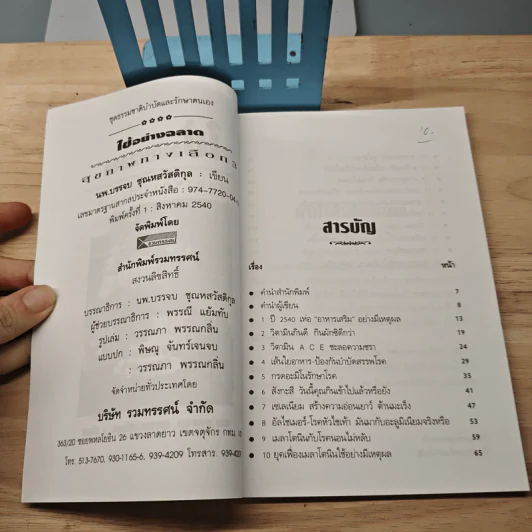 ชุดธรรมชาติบำบัดและรักษาตนเอง
ใช้อย่างฉลาด
สุขภาพทางเลือก
นพ.บรรจบ ชุณหสวัสดิกุล : เขียน
เลขมาตรฐานสากลประจำหนังสือ : 974-7720-04
พิมพ์ครั้งที่ 1 : สิงหาคม 2540
จัดพิมพ์โดย
รวมทรรศน์
สำนักพิมพ์รวมทรรศน์
สงวนลิขสิทธิ์
บรรณาธิการ : นพ.บรรจบ ชุณหสวัสดิกุล
ผู้ช่วยบรรณาธิการ : พรรณี แย้มทับ
รูปเล่ม : วรรณภา พรรณกลิ่น
แบบปก : พิษณุ จันทร์เจนจบ
: วรรณภา พรรณกลิ่น
จัดจำหน่ายทั่วประเทศโดย
บริษัท รวมทรรศน์ จำกัด
363/20 ซอยพหลโยธิน 26 แขวงลาดยาว เขตจตุจักร กทม.
โทร. 513-7670, 930-1165-6, 939-4209 โทรสาร. 939-420
สารบัญ
เรื่อง หน้า
คำนำสำนักพิมพ์ 7
คำนำผู้เขียน 8
1 ปี 2540 เห่อ "อาหารเสริม" อย่างมีเหตุผล 13
2 วิตามินกินดี กินผักซิดีกว่า 19
3 วิตามิน A C E ชะลอความชรา 24
4 เส้นใยอาหาร-ป้องกันบำบัดสรรพโรค 29
5 กรดอะมิโนรักษาโรค 35
6 สังกะสี วันนี้คุณกินเข้าไปแล้วหรือยัง 41
7 เซเลเนียม สร้างความอ่อนเยาว์ ต้านมะเร็ง 47
8 อัลไซเมอร์-โรคหัวไซเท้า มันมากับอะลูมิเนียมจริงหรือ 53
9 เมลาโตนินกับโรคนอนไม่หลับ 59
10 ยุคเฟื่องเมลาโตนินใช้อย่างมีเหตุผล 65